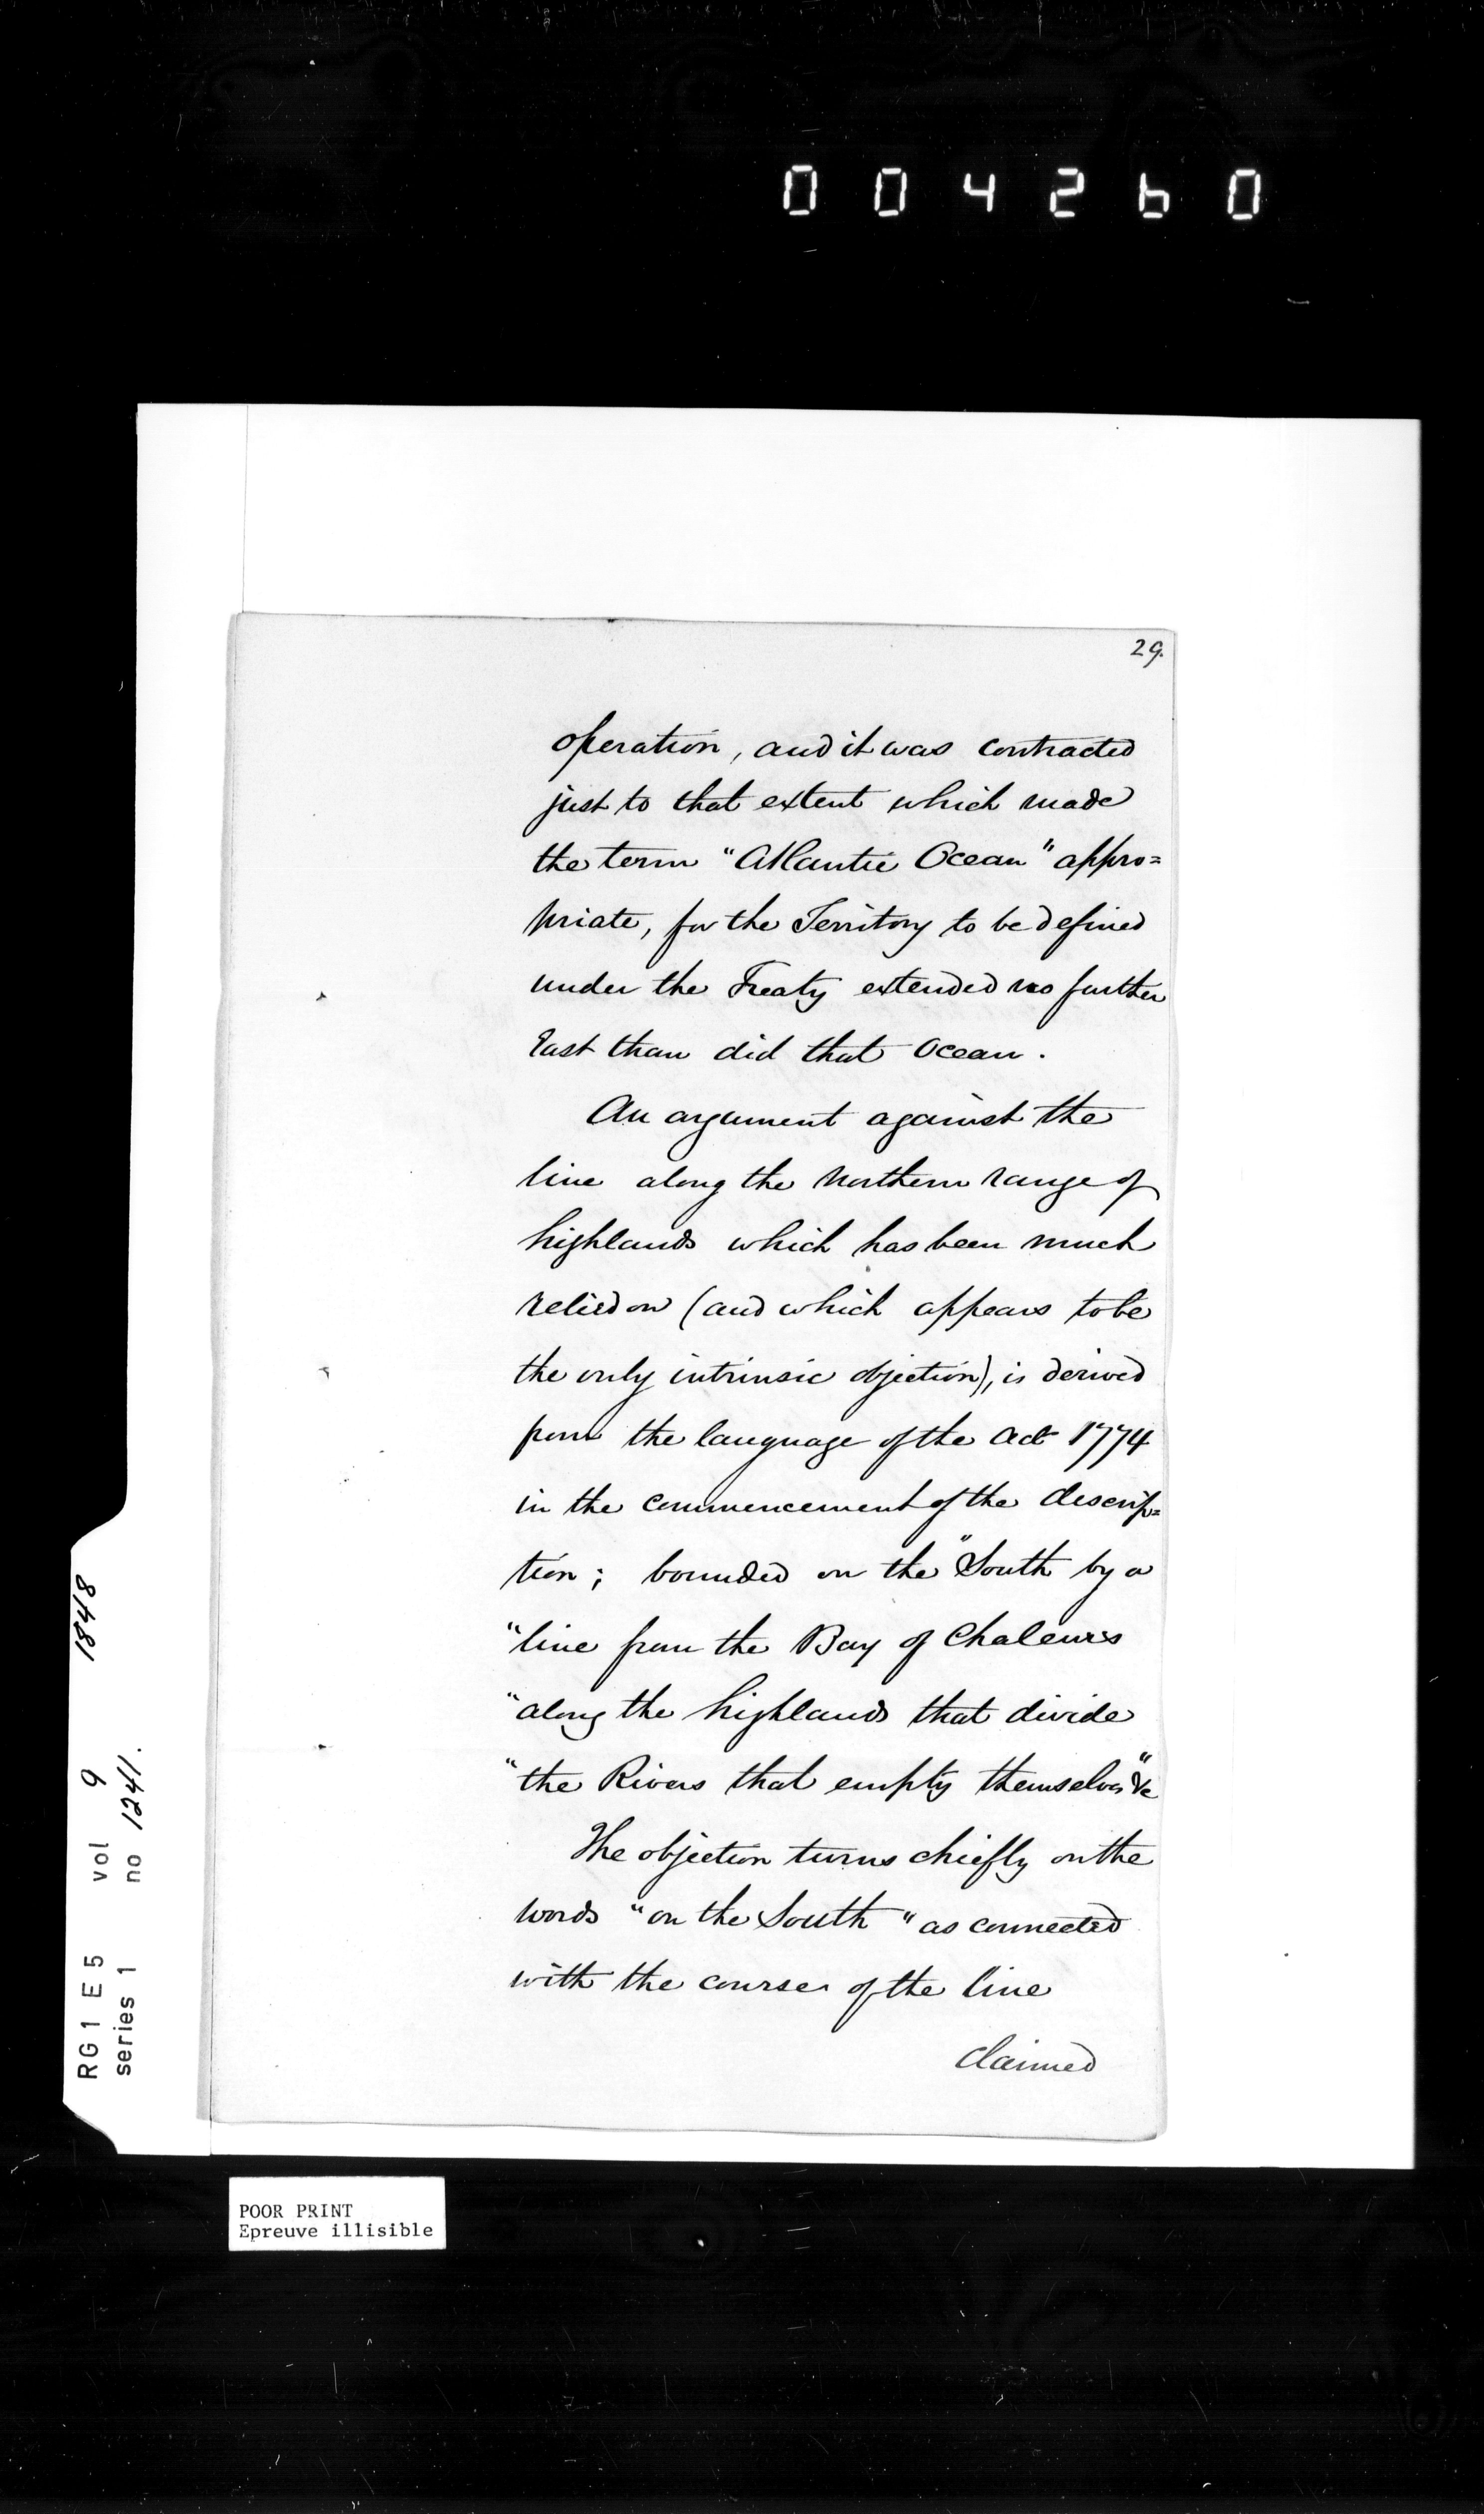 004260
29.
operation, and it was contracted
just to that extent which made
the term "Atlantic Ocean" appro=
priate, for the Territory to be defined
under the Treaty extended no further
East than did that Ocean.
An argument against the
line along the Northern range of
highlands which has been much
relied on (and which appears to be
the only intrinsic objection), is derived
from the language of the Act 1774
in the commencement of the descrip=
tion; bounded on the "South by a
"line from the Bay of Chaleurs
"along the highlands that divide
"the Rivers that empty themselves" &c
The objection turns chiefly on the
words "on the South" as connected
with the course of the line
claimed
RG1 E5 vol 9 1848
series 1 no 1241.
POOR PRINT
Epreuve illisible